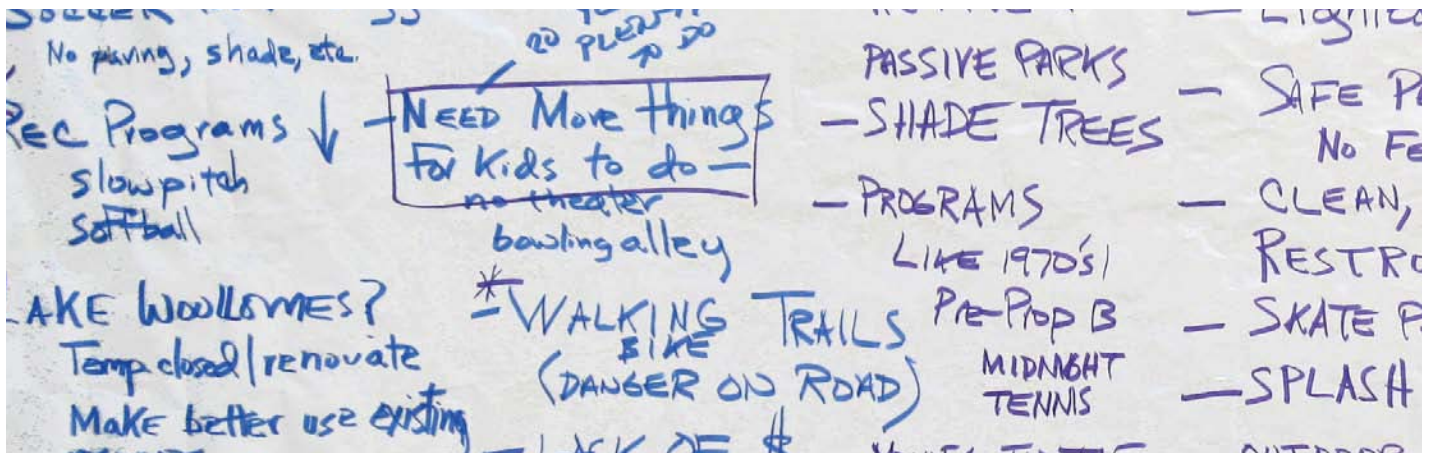 SOCCER
No paving, shade, etc.
REC Programs ↓
slowpitch
softball
LAKE WOOLLOMES?
Temp closed/renovate
Make better use existing
20 PLENTY
TO DO
- NEED More things
For Kids to do -
no theater
bowling alley
* - WALKING TRAILS
BIKE
(DANGER ON ROAD)
- LACK OF $
PASSIVE PARKS
- SHADE TREES
- PROGRAMS
LIKE 1970's/
Pre-Prop B
MIDNIGHT
TENNIS
- Lighted
- SAFE P
No FE
- CLEAN,
RESTRO
- SKATE P
- SPLASH
OUTDOOR